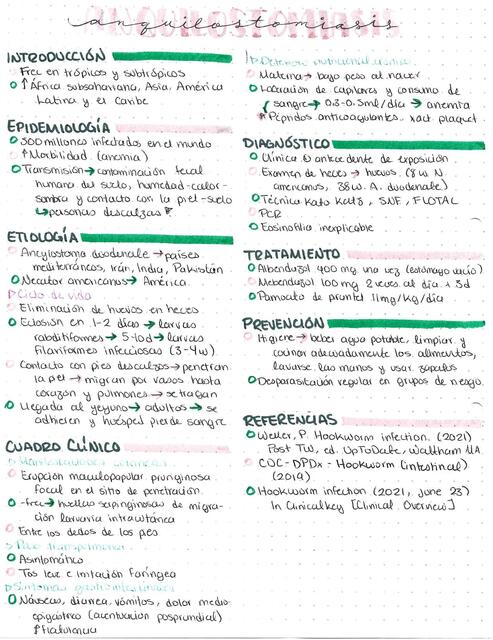 anquilostomiasis
INTRODUCCIÓN
Frec en trópicos y subtrópicos
↑ África subsahariana, Asia, América
Latina y el Caribe
EPIDEMIOLOGÍA
500 millones infectados en el mundo
↑ Morbilidad (anemia)
Transmisión → contaminación fecal
humana del suelo, humedad-calor-
sombra y contacto con la piel-suelo
↳ personas descalzas
ETIOLOGÍA
Ancylostoma duodenale → países
mediterráneos, Irán, India, Pakistán
Necator americanus → América
Ciclo de vida
Eliminación de huevos en heces
Eclosión en 1-2 días → larvas
rabditiformes → 5-10d → larvas
filariformes infecciosas (3-4w)
Contacto con pies descalzos → penetran
la piel → migran por vasos hasta
corazón y pulmones → se tragan
Llegada al yeyuno → adultos → se
adhieren y huésped pierde sangre
CUADRO CLÍNICO
Manifestaciones cutáneas
Erupción maculopapular pruriginosa
focal en el sitio de penetración
-frec → huellas serpinginosas de migra-
ción larvaria intracutánea
Entre los dedos de los pies
Paso transpulmonar
Asintomático
Tos leve e irritación faríngea
Síntomas gastrointestinales
Náuseas, diarrea, vómitos, dolor medio-
epigástrico (acentuación posprandial)
↑ flatulencia
Deterioro nutricional crónico
Materna → bajo peso al nacer
Laceración de capilares y consumo de
sangre → 0.3-0.5ml/día → anemia
Péptidos anticoagulantes, xact plaquet.
DIAGNÓSTICO
Clínica antecedente de exposición
Examen de heces → huevos (8w N.
americanus, 38w A. duodenale)
Técnica Kato Katz, SNF, FLOTAC
PCR
Eosinofilia inexplicable
TRATAMIENTO
Albendazol 400 mg una vez (estómago vacío)
Mebendazol 100 mg 2 veces al día x 3d
Pamoato de pirantel 11mg/kg/día
PREVENCIÓN
Higiene → beber agua potable, limpiar y
cocinar adecuadamente los alimentos,
lavarse las manos y usar zapatos
Desparasitación regular en grupos de riesgo
REFERENCIAS
Weller, P. Hookworm infection. (2021)
Post TW, ed. UpToDate, Waltham MA.
CDC-DPDx - Hookworm (Intestinal)
(2019)
Hookworm infection (2021, June 23)
In Clinicalkey [Clinical Overview]